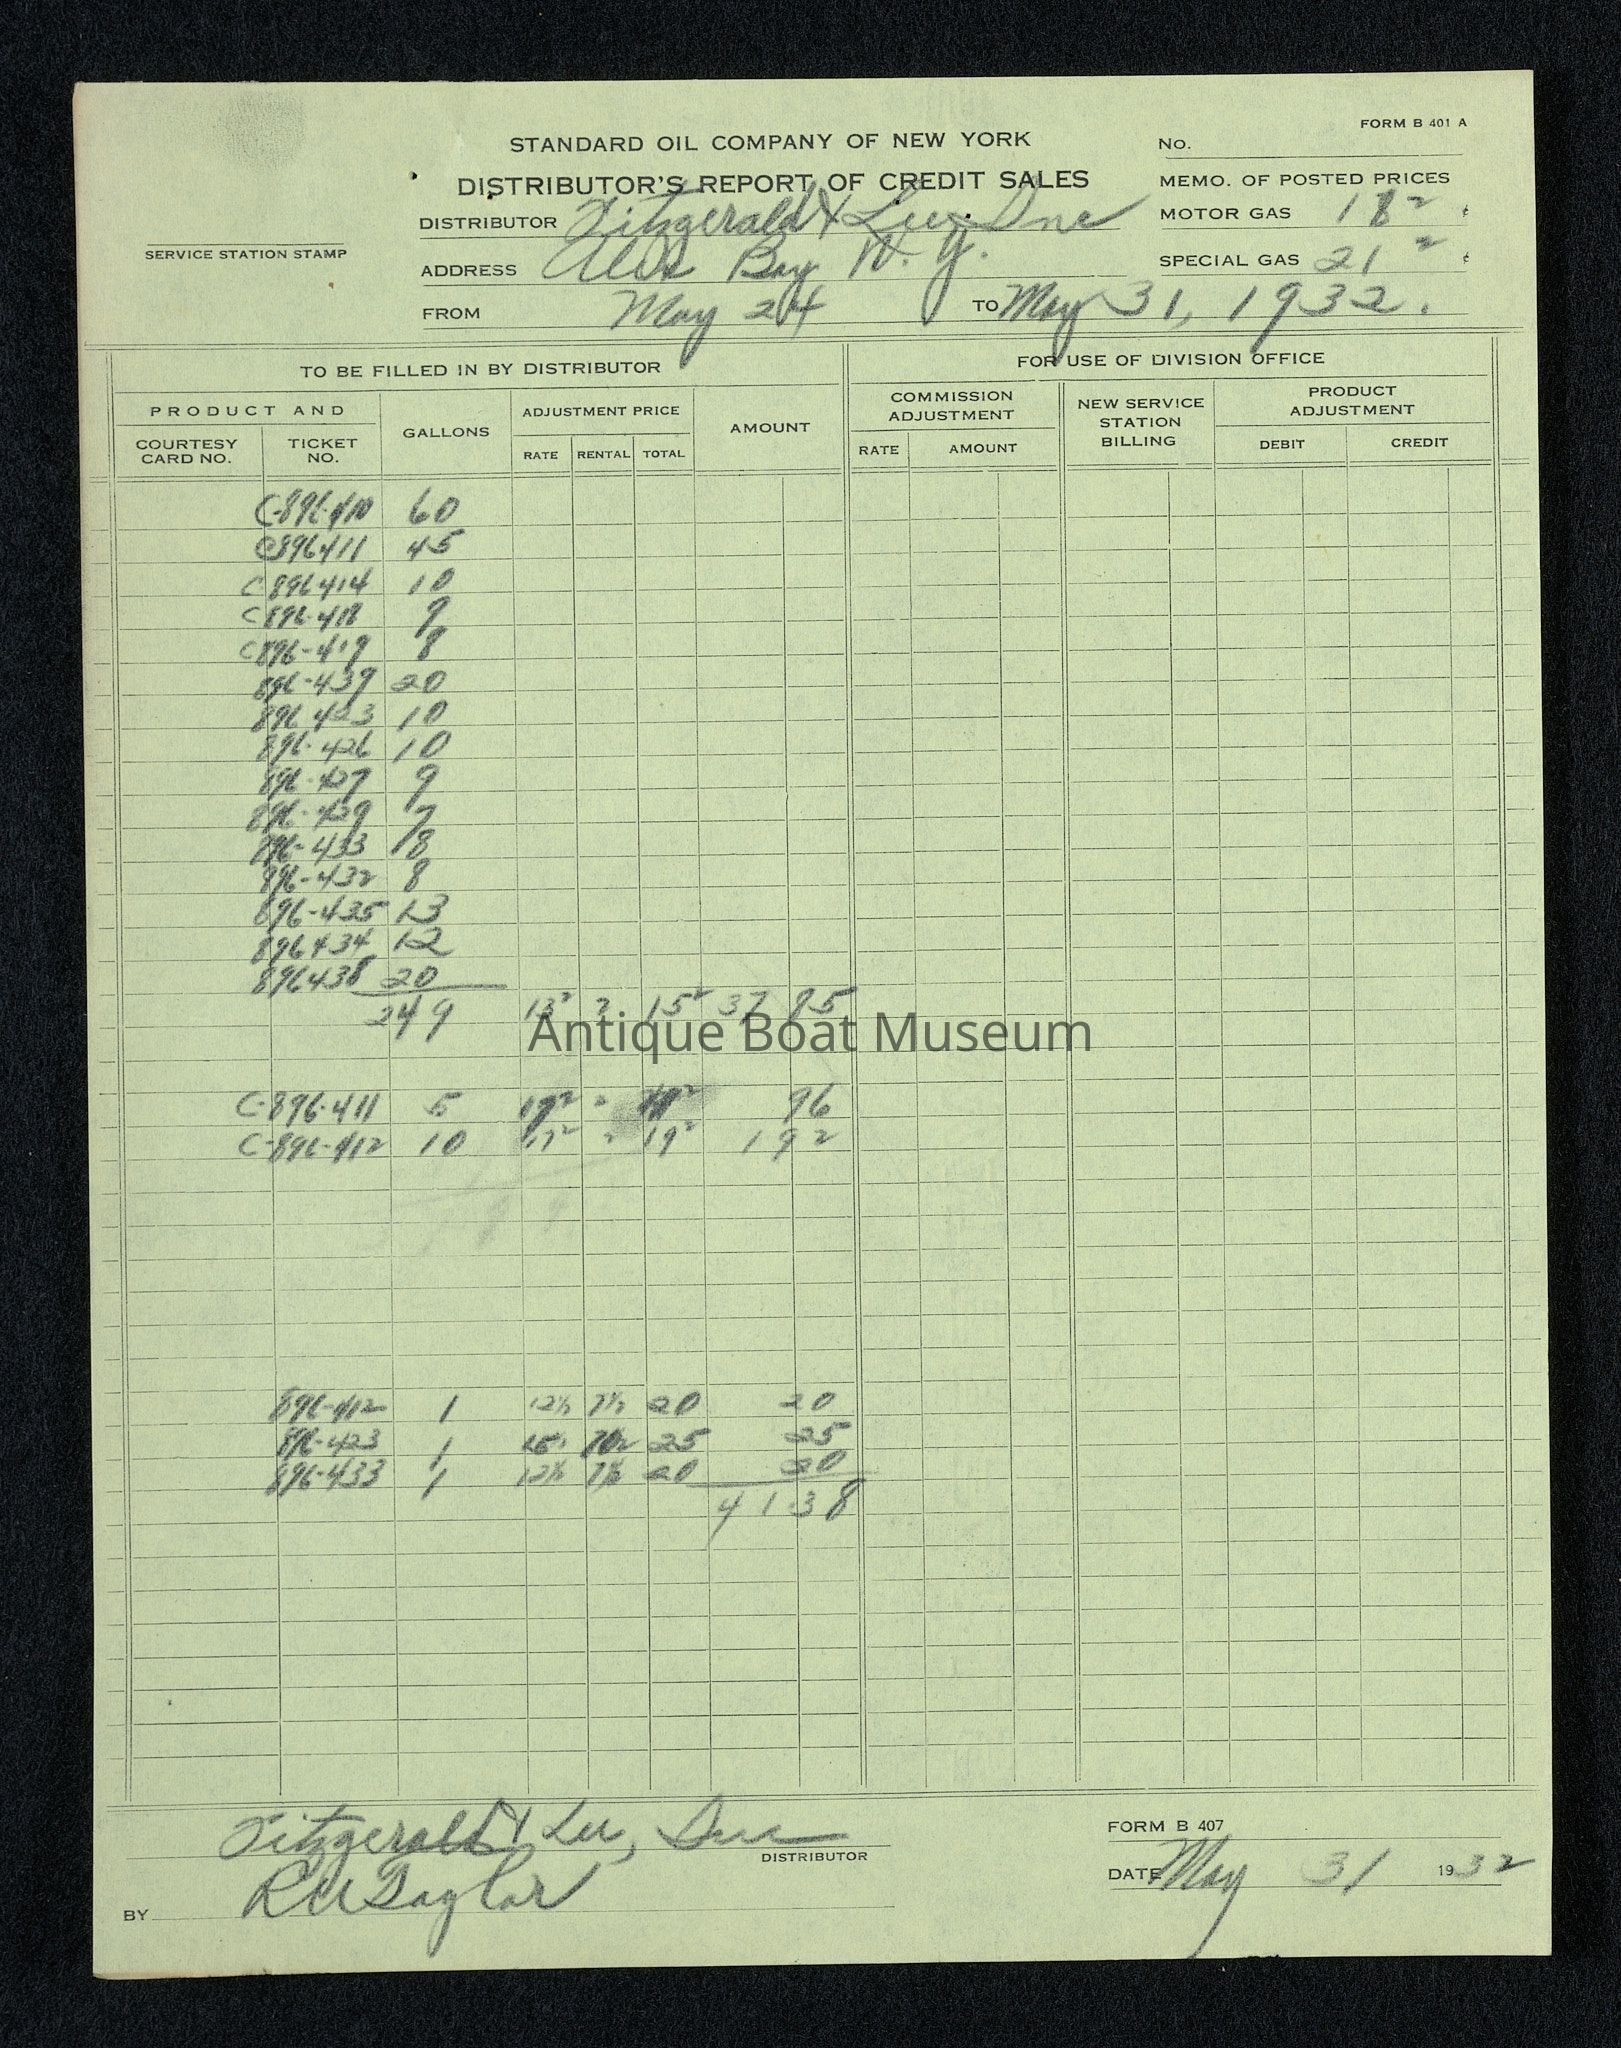 FORM B 401 A
STANDARD OIL COMPANY OF NEW YORK
No.
DISTRIBUTOR'S REPORT OF CREDIT SALES
MEMO. OF POSTED PRICES
DISTRIBUTOR Fitzgerald & Lee, Inc
MOTOR GAS 18² ¢
SERVICE STATION STAMP
ADDRESS Alex Bay N. Y.
SPECIAL GAS 21² ¢
FROM May 24 TO May 31, 1932.
TO BE FILLED IN BY DISTRIBUTOR
FOR USE OF DIVISION OFFICE
PRODUCT AND
COURTESY CARD NO.
TICKET NO.
GALLONS
ADJUSTMENT PRICE
RATE RENTAL TOTAL
AMOUNT
COMMISSION ADJUSTMENT
RATE AMOUNT
NEW SERVICE STATION BILLING
PRODUCT ADJUSTMENT
DEBIT CREDIT
C-896-410 60
C896411 45
C896414 10
C896-418 9
C896-419 8
896-439 20
896 423 10
896-426 10
896-427 9
896-429 7
896-433 8
896-432 8
896-435 13
896434 12
896438 20
249 13² 2 15² 37 85
Antique Boat Museum
C-896-411 5 17² 2 19² 96
C-896-412 10 17² 2 19² 1 92
896-412 1 12½ 7½ 20 20
896-423 1 15 10 25 25
896-433 1 12½ 7½ 20 20
41.38
Fitzgerald & Lee, Inc
DISTRIBUTOR
FORM B 407
DATE May 31 1932
BY R W Taylor